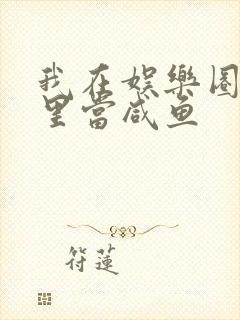 我在娱樂圈
里當咸鱼
符蓮